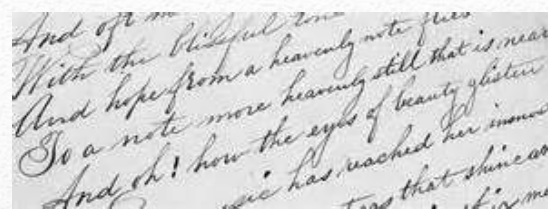 And oft m
With the blissful tone
And hope from a heavenly note flies
To a note more heavenly still that is near
And oh! how the eyes of beauty glisten
has reached her
that shine